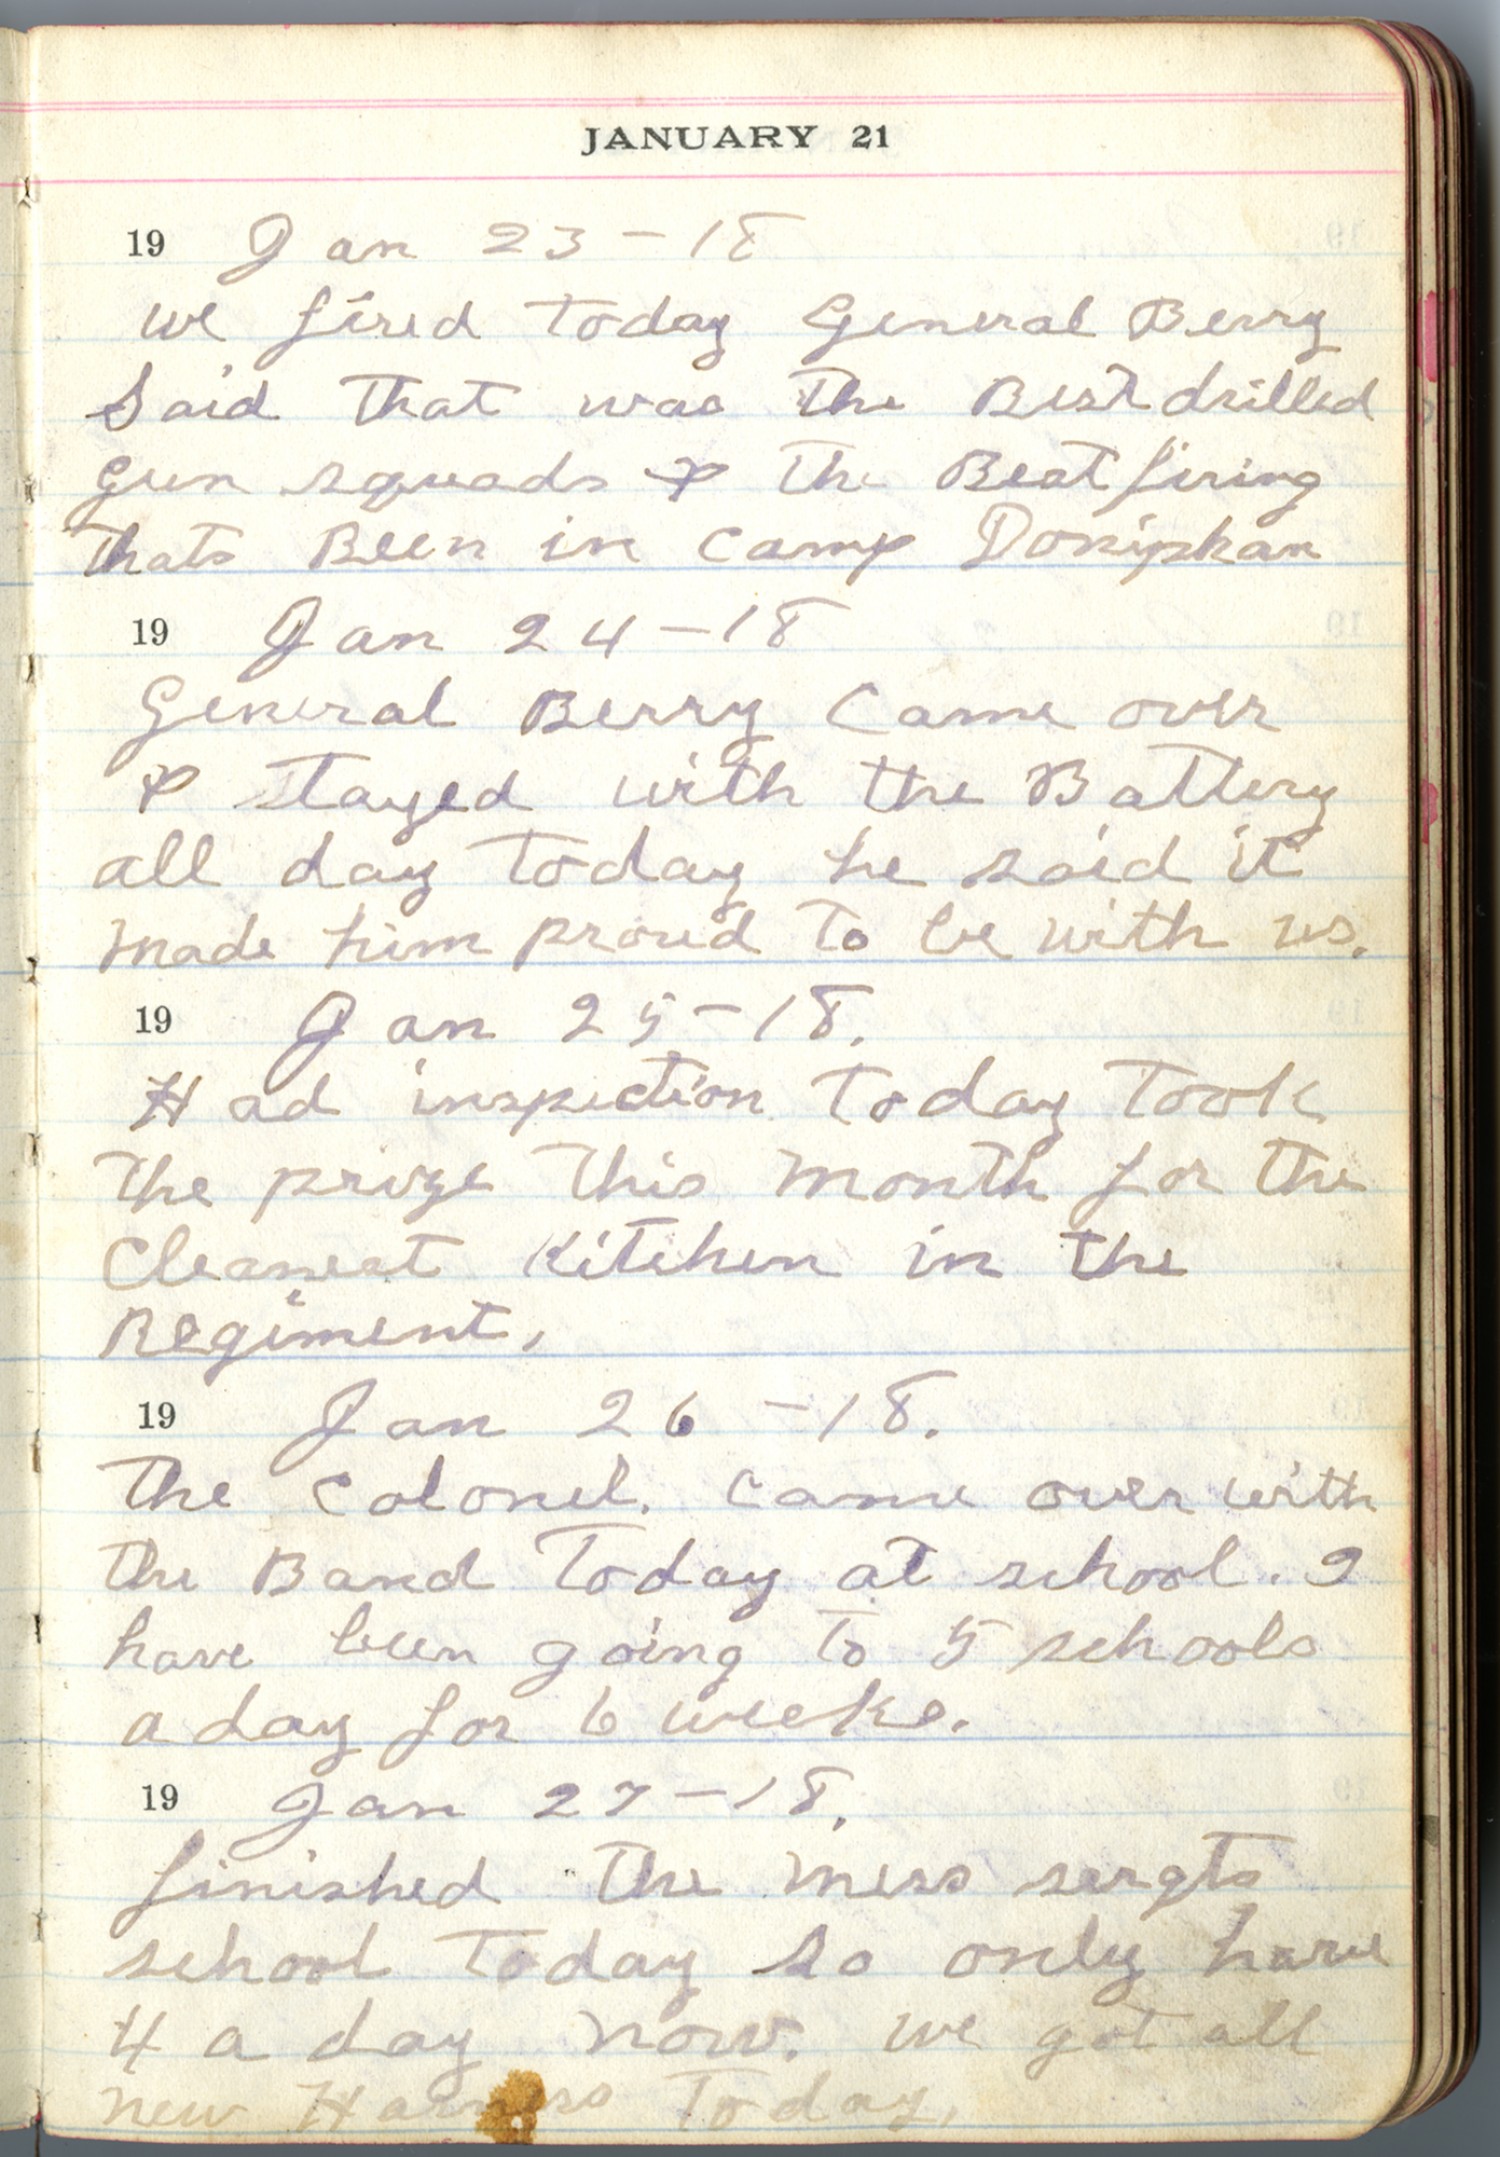 JANUARY 21
19 Jan 23-18
we fired today General Berry
Said that was the Best drilled
gun squads & the Best firing
thats Been in Camp Doniphan
19 Jan 24-18
General Berry Came over
& stayed with the Battery
all day today he said it
made him proud to be with us.
19 Jan 25-18.
Had inspection today took
the prize this month for the
Cleanest Kitchen in the
Regiment,
19 Jan 26-18.
The Colonel. came over with
the Band Today at school. I
have been going to 5 schools
a day for 6 weeks.
19 Jan 27-18.
finished the mess sergts
school today so only have
4 a day now. we got all
new Harness Today,